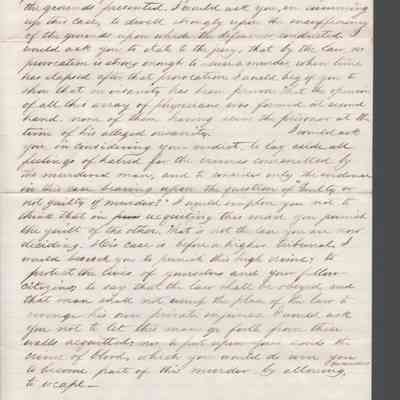 the grounds presented. I would ask you, in summing
up this case, to dwell strongly upon the
of the grounds upon which the defence conducted. I
would ask you to state to the jury, that by the law no
provocation is strong enough to excuse murder when time
has elapsed after that provocation. I would beg of you to
show that no insanity has been proven that the opinion
of all this array of physicians was formed at second
hand. none of them having seen the prisoner at the
time of his alleged insanity. I would ask
you in considering your verdict to lay aside all
feelings of hatred for the crimes committed by
the murdered man, and to consider only the evidence
in this case bearing upon the question of "Guilty or
not guilty of murder?" I would implore you not to
think that in acquitting this man you punish
the guilt of the other. That is not the case you are now
deciding. His case is before a higher tribunal. I
would beseech you to punish this high crime; to
protect the lives of yourselves and your fellow
citizens; to say that the law shall be obeyed and
that man shall not usurp the place of the law to
revenge his own private injuries. I would ask
you not to let this man go forth from these
walls acquitted; not to put upon your hands the
crime of blood, which you would do were you
to become part of this murder by allowing,
to escape—